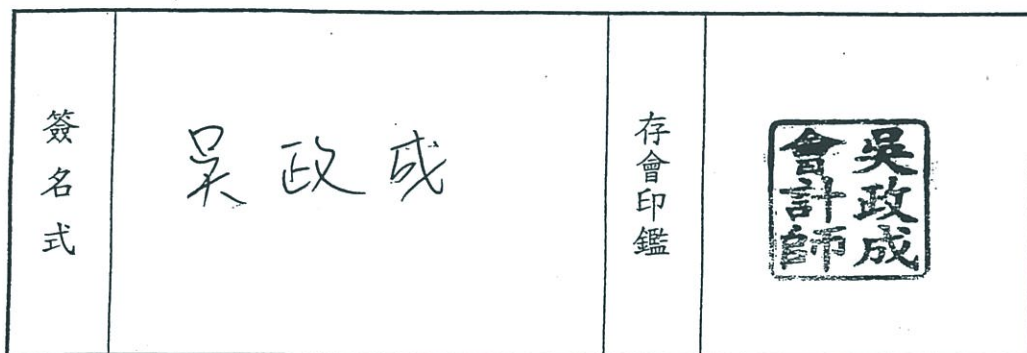 簽名式
吳政成
存會印鑑
吳政成
會計師